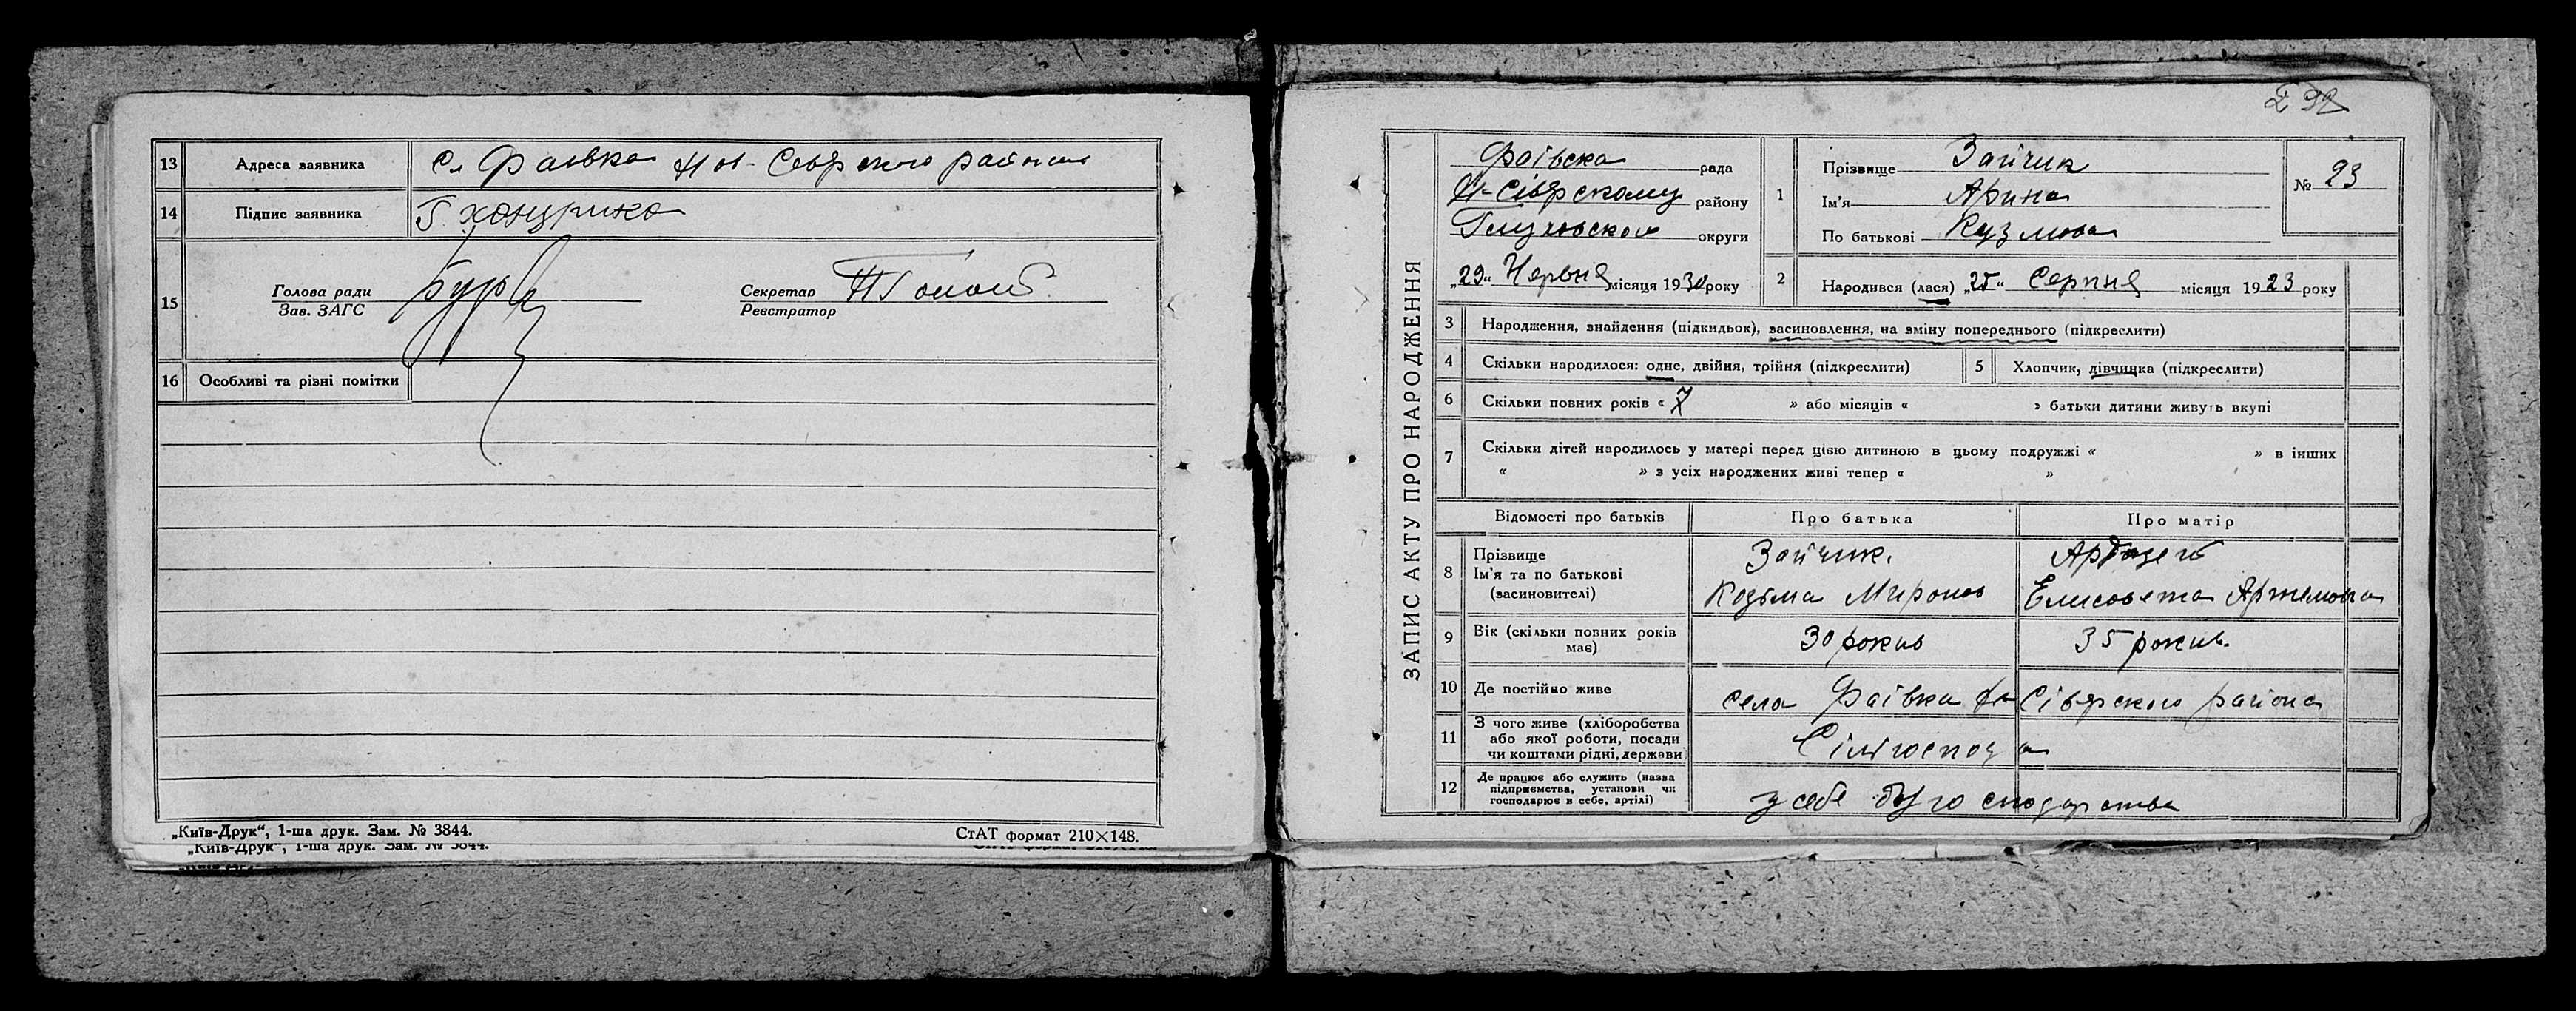 13 Адреса заявника Сл Фаевка Нов-Севрского района
14 Підпис заявника Г.
15 Голова ради Секретар
Зав. ЗАГС Реєстратор
16 Особливі та різні помітки
„Київ-Друк“, 1-ша друк. Зам. № 3844. СтАТ формат 210×148.
„Київ-Друк“, 1-ша друк. Зам. № 3844.
ЗАПИС АКТУ ПРО НАРОДЖЕННЯ
Фаівска рада
Н-Сіврскому району
Глуховской округи
„29“ Червня місяця 1930 року
1 Прізвище Зайчик
Ім'я Арина
По батькові Кузмова
№ 23
2 Народився (лася) „25“ Серпня місяця 1923 року
3 Народження, знайдення (підкидьок), засиновлення, на зміну попереднього (підкреслити)
4 Скільки народилося: одне, двійня, трійня (підкреслити) 5 Хлопчик, дівчинка (підкреслити)
6 Скільки повних років « 7 » або місяців « » батьки дитини живуть вкупі
7 Скільки дітей народилось у матері перед цією дитиною в цьому подружжі « » в інших
« » з усіх народжених живі тепер « »
Відомості про батьків Про батька Про матір
8 Прізвище Зайчик.
Ім'я та по батькові Козьма Миронов Елисовета Артемовна
(засновителі)
9 Вік (скільки повних років має) 30 рокив 35 рокив.
10 Де постійно живе села Фаівка Н-Сіврского района
11 З чого живе (хліборобства
або якої роботи, посади
чи коштами рідні, держави)
12 Де працює або служить (назва
підприємства, установи чи
господарює в себе, артілі)
у себе